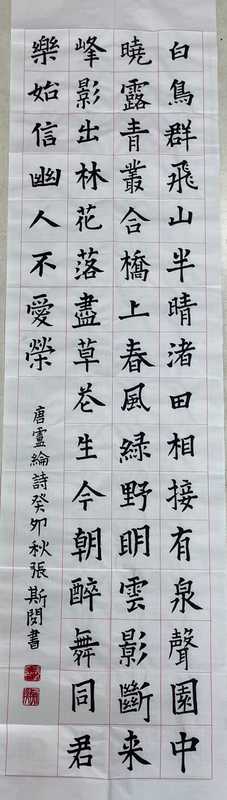 白鳥群飛山半晴渚田相接有泉聲園中
曉露青叢合橋上春風綠野明雲影斷来
峰影出林花落盡草芲生今朝醉舞同君
樂始信幽人不愛榮
唐盧綸詩癸卯秋張斯閔書